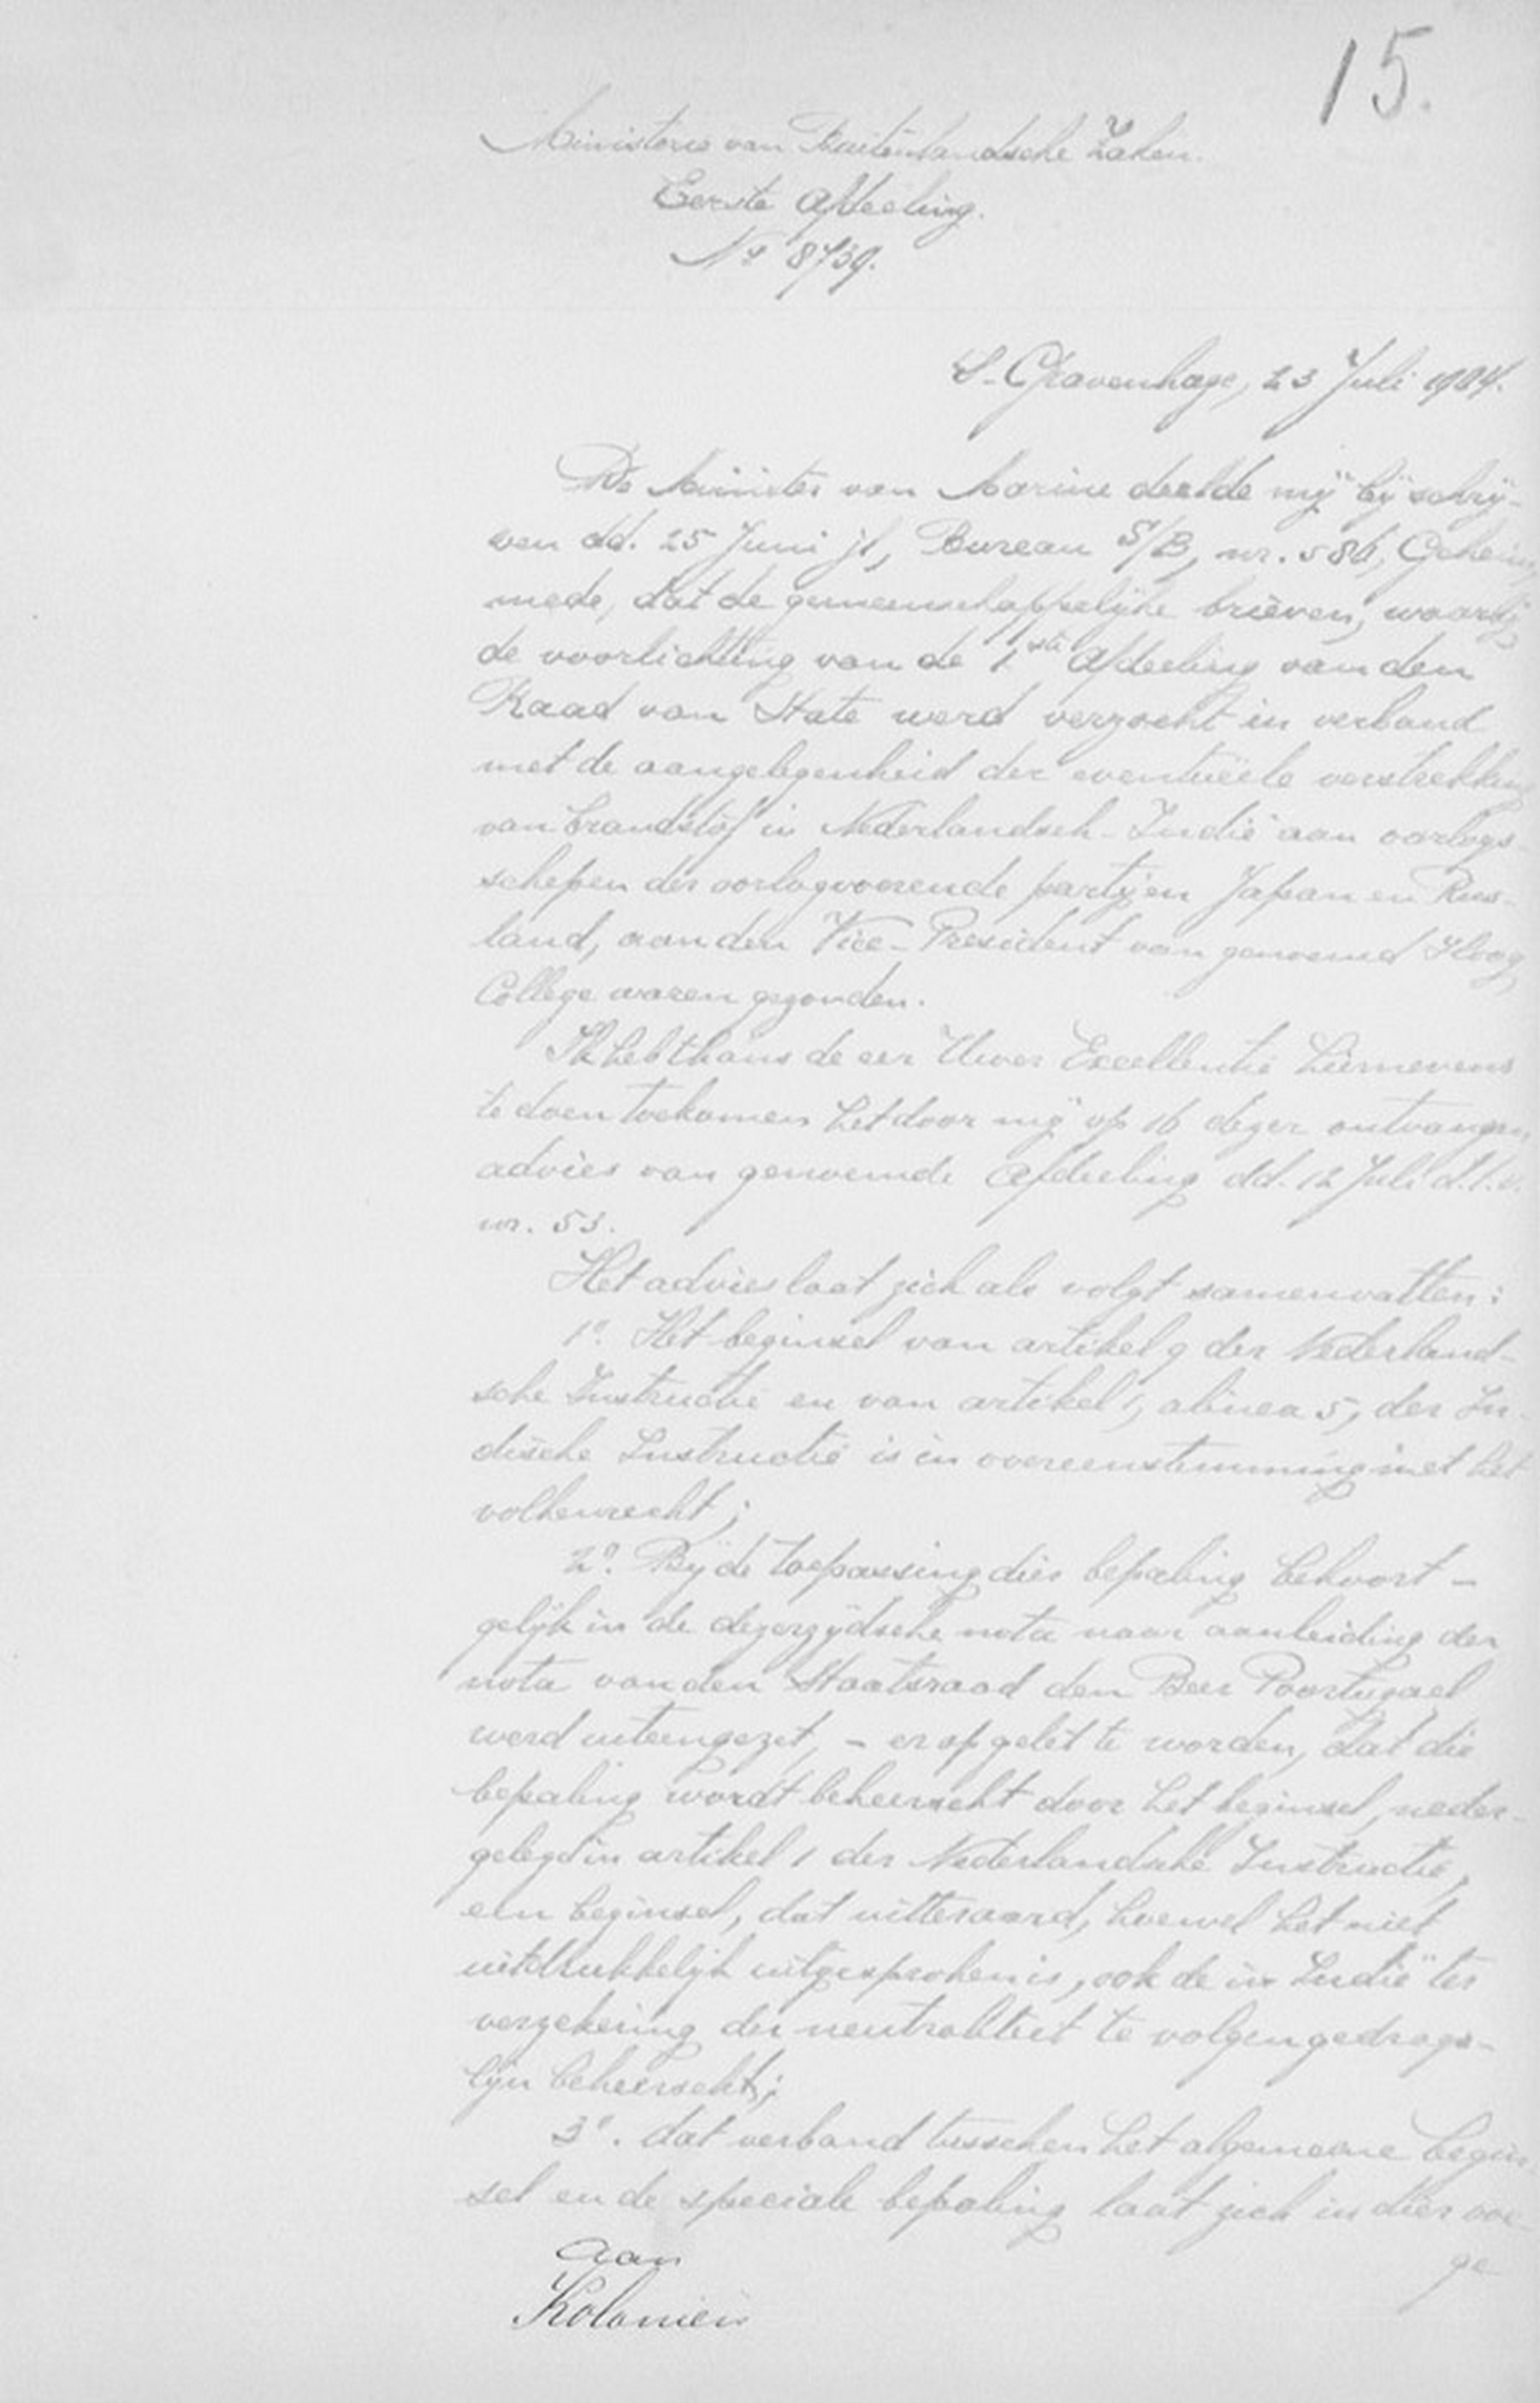 15.
Ministerie van Buitenlandsche Zaken.
Eerste Afdeeling.
No 8739.
S-Gravenhage, 23 Juli 1904.
De Minister van Marine deelde mij bij schrij-
ven dd. 25 Juni jl, Bureau S/B, nr. 586, Geheim,
mede, dat de gemeenschappelijke brieven, waarbij
de voorlichting van de 1ste Afdeeling van den
Raad van State werd verzocht in verband
met de aangelegenheid der eventuëele verstrekking
van brandstof in Nederlandsch-Indië aan oorlogs-
schepen der oorlogvoerende partijen Japan en Rus-
land, aan den Vice-President van genoemd Hoog
College waren gezonden.
Ik heb thans de eer Uwer Excellentie hiernevens
te doen toekomen het door mij op 16 dezer ontvangen
advies van genoemde Afdeeling dd. 12 Juli d.
nr. 53.
Het advies laat zich als volgt samenvatten:
1o. Het beginsel van artikel 9 der Nederland-
sche Instructie en van artikel 1, alinea 5, der In-
dische Instructie is in overeenstemming met het
volkenrecht;
2o. Bij de toepassing dier bepaling behoort -
gelijk in de dezerzijdsche nota naar aanleiding der
nota van den Staatsraad den Beer Poortugael
werd uiteengezet, - er op gelet te worden, dat die
bepaling wordt beheerscht door het beginsel, neder-
gelegd in artikel 1 der Nederlandsche Instructie,
een beginsel, dat uitteraard, hoewel het niet
uitdrukkelijk uitgesproken is, ook de in Indië ter
verzekering der neutraliteit te volgen gedrags-
lijn beheerscht;
3o. dat verband tusschen het algemeene begin-
sel en de speciale bepaling laat zich in dier voe-
ge
Aan
Koloniën